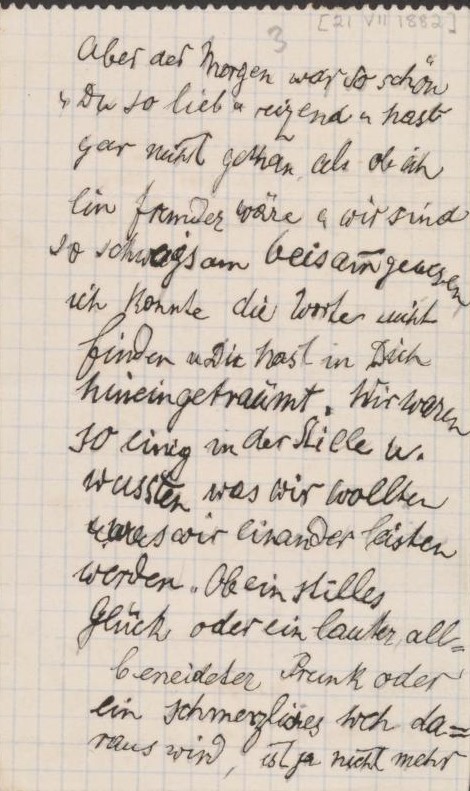 [21 VII 1882]
3
Aber der Morgen war so schön
u Du so lieb u reizend u hast
gar nicht gethan als ob ich
ein fremder wäre u wir sind
so schweigsam beisam̄gewesen
ich konnte die Worte nicht
finden u Du hast in Dich
hineingeträumt. Wir waren
so einig in der Stille u.
wussten was wir wollten
u was wir einander leisten
werden. Ob ein stilles
Glück oder ein lauter, all=
beneideter Prunk oder
ein schmerzliches Weh da=
raus wird, ist ja nicht mehr